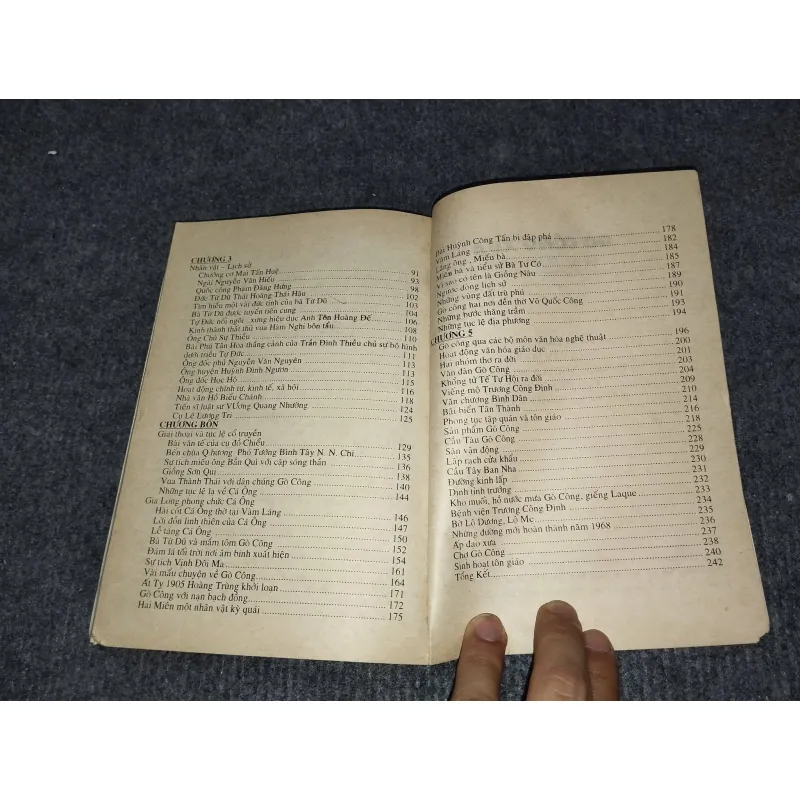 CHƯƠNG 3
Nhân vật – Lịch sử
Chưởng cơ Mai Tấn Huệ 91
Ngài Nguyễn Văn Hiếu 93
Quốc công Phạm Đăng Hưng 98
Đức Từ Dũ Thái Hoàng Thái Hậu 102
Tìm hiểu một vài đức tính của bà Từ Dũ 103
Bà Từ Dũ được tuyển tiến cung 104
Tự Đức nối ngôi, xưng hiệu dục Anh Tôn Hoàng Đế 106
Kinh thành thất thủ vua Hàm Nghi bôn tẩu 108
Ông Chủ Sự Thiều 110
Bài Phú Tân Hòa thắng cảnh của Trần Đình Thiều chủ sự bộ hình
dưới triều Tự Đức 111
Ông đốc phủ Nguyễn Văn Nguyên 113
Ông huyện Huỳnh Đình Ngươn 113
Ông đốc Học Hộ 115
Hoạt động chính trị, kinh tế, xã hội 116
Nhà văn Hồ Biểu Chánh 118
Tiến sĩ luật sư Vương Quang Nhường 124
Cụ Lê Lương Tri 125
CHƯƠNG BỐN
Giai thoại và tục lệ cổ truyền
Bài văn tế của cụ đồ Chiểu 129
Bến chùa Q hương Phú Tướng Bình Tây N. N. Chi 135
Sự tích miễu ông Bần Quì với cặp sóng thần 136
Giồng Sơn Qui 138
Vua Thành Thái với dân chúng Gò Công 140
Những tục lệ lạ về Cá Ông 144
Gia Long phong chức Cá Ông
Hài cốt Cá Ông thờ tại Vàm Láng 146
Lời đồn linh thiên của Cá Ông 147
Lễ táng Cá Ông 150
Bà Từ Dũ và mắm tôm Gò Công 152
Đám lá tối trời nơi âm binh xuất hiện 154
Sự tích Vịnh Đôi Ma 161
Vài mẩu chuyện về Gò Công 164
Ất Tỵ 1905 Hoàng Trùng khởi loạn 171
Gò Công với nạn bạch đồng 172
Hai Miên một nhân vật kỳ quái 175
Đài Huỳnh Công Tấn bị đập phá 178
Vàm Láng 182
Lăng ông, Miễu bà 184
Miễu bà và tiểu sử Bà Tư Có 185
Vì sao có tên là Giồng Nâu 187
Ngược dòng lịch sử 189
Những vùng đất trù phú 190
Gò công hai nơi đền thờ Võ Quốc Công 191
Những bước thăng trầm 193
Những tục lệ địa phương 194
CHƯƠNG 5
Gò công qua các bộ môn văn hóa nghệ thuật 196
Hoạt động văn hóa giáo dục 200
Hai nhóm thơ ra đời 201
Văn đàn Gò Công 203
Khổng tử Tế Tự Hội ra đời 204
Viếng mộ Trương Công Định 209
Văn chương Bình Dân 210
Bãi biển Tân Thành 214
Phong tục tập quán và tôn giáo 216
Sản phẩm Gò Công 218
Cầu Tàu Gò Công 225
Sân vận động 228
Lấp rạch cửa khẩu 229
Cầu Tây Ban Nha 230
Đường kinh lấp 231
Dinh tỉnh trưởng 232
Kho muối, hồ nước mưa Gò Công, giếng Laque 234
Bệnh viện Trương Công Định 235
Bờ Lô Dương, Lô Mẹ 235
Những đường mới hoàn thành năm 1968 236
Ấp đạo xưa 237
Chợ Gò Công 238
Sinh hoạt tôn giáo 240
Tổng Kết 242